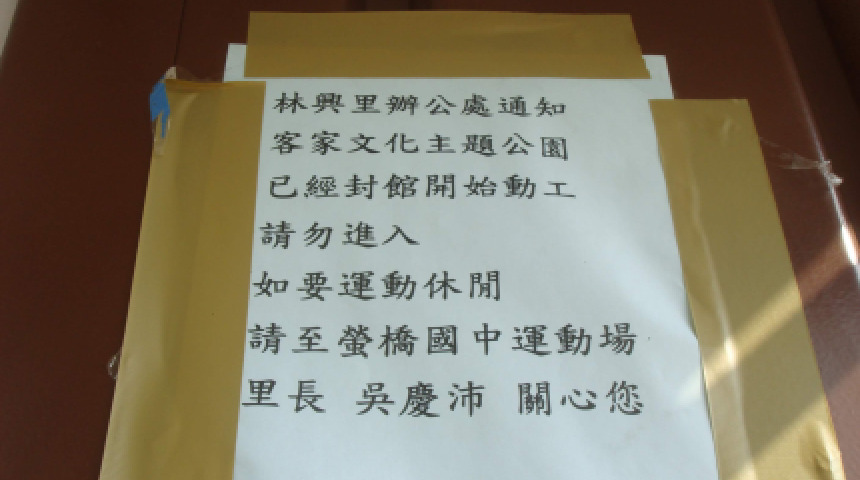 林興里辦公處通知
客家文化主題公園
已經封館開始動工
請勿進入
如要運動休閒
請至螢橋國中運動場
里長 吳慶沛 關心您